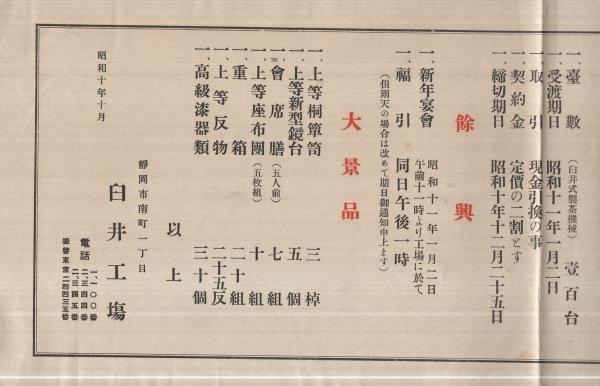 一、臺數 (臼井式製茶機械) 壹百台
一、受渡期日 昭和十一年一月二日
一、取引 現金引換の事
一、契約金 定價の二割とす
一、締切期日 昭和十年十二月二十五日
餘興
一、新年宴會 昭和十一年一月二日
午前十一時より工場に於て
一、福引 同日午後一時
(但雨天の場合は改めて期日御通知申上ます)
大景品
一、上等桐簞笥 三棹
一、上等新型鏡台 五個
一、會席膳 (五人前) 七組
一、上等座布團 (五枚組) 十組
一、重箱 二十組
一、上等反物 二十五反
一、高級漆器類 三十個
以上
昭和十年十月
靜岡市南町一丁目
臼井工塲
電話
一、一〇〇番
二、三四四番
二、三四五番
振替東京二四四三五番